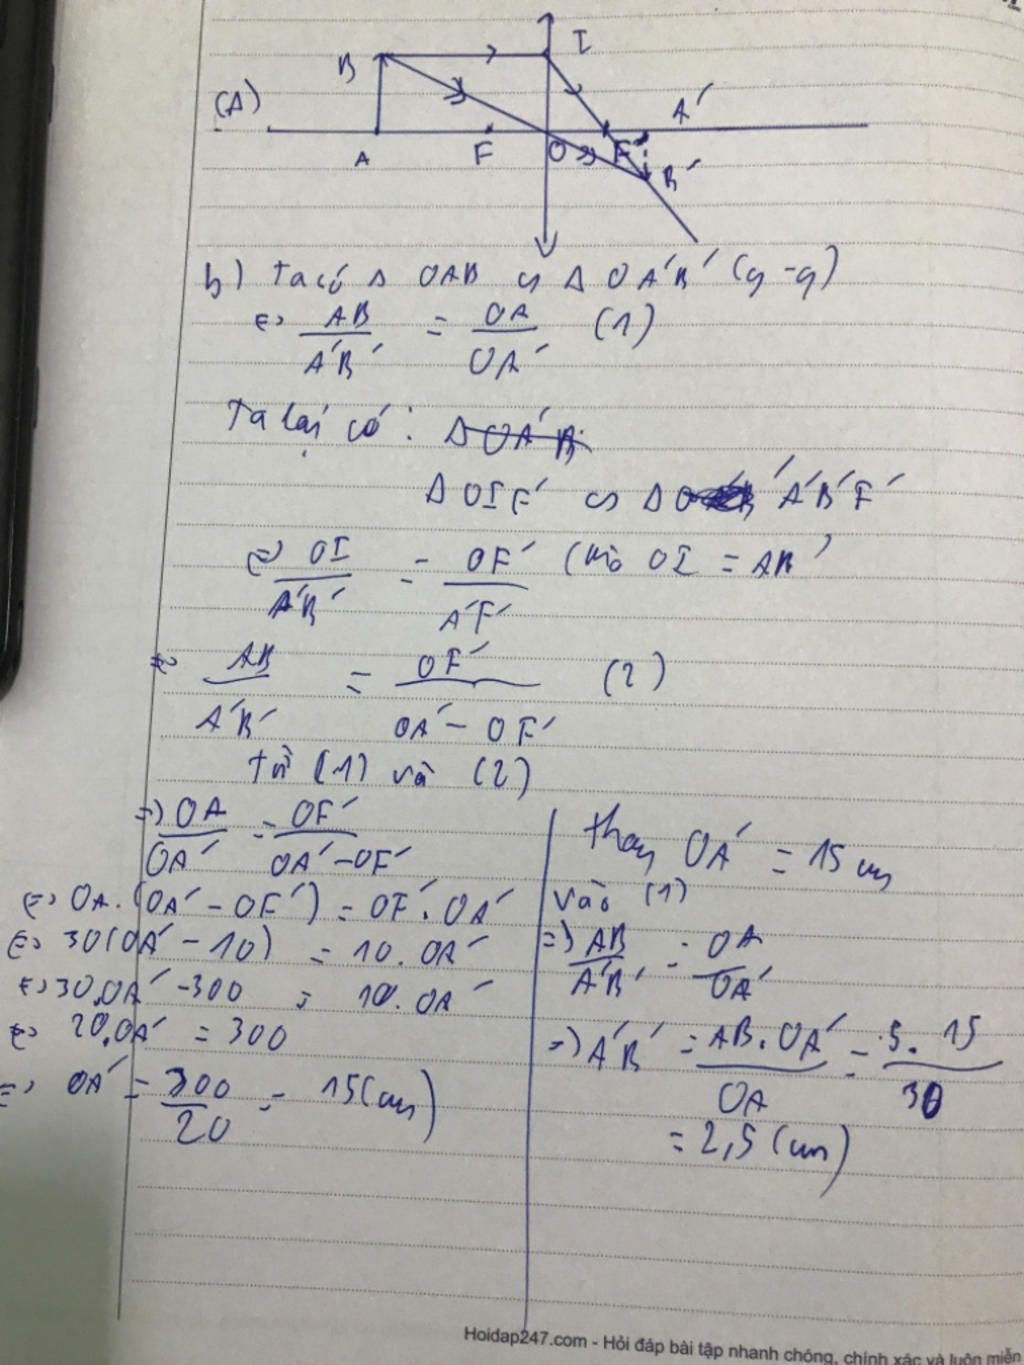 I
B
(A)
A'
A F O F'
B'
b) Ta có Δ OAB ∽ Δ OA'B' (g-g)
⇔ AB/A'B' = OA/OA' (1)
Ta lại có: Δ OA'B
Δ OIF' ∽ Δ A'B'F'
⇔ OI/A'B' = OF'/A'F' (mà OI = AB)
⇔ AB/A'B' = OF'/OA' - OF' (2)
từ (1) và (2)
=> OA/OA' = OF'/OA' - OF'
⇔ OA.(OA' - OF') = OF'. OA'
⇔ 30(OA' - 10) = 10. OA'
⇔ 30.OA' - 300 = 10. OA'
⇔ 20.OA' = 300
=> OA' = 300/20 = 15(cm)
thay OA' = 15 cm
vào (1)
=> AB/A'B' = OA/OA'
=> A'B' = AB.OA'/OA = 5. 15/30
= 2,5 (cm)
Hoidap247.com - Hỏi đáp bài tập nhanh chóng, chính xác và luôn miễn